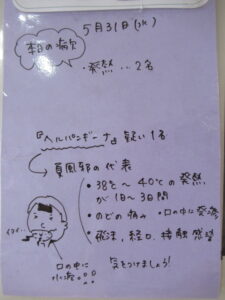 5月31日(水)
本日の病欠
・発熱…2名
『ヘルパンギーナ』疑い1名
夏風邪の代表
・38℃〜40℃の発熱
が1日〜3日間
・のどの痛み ・口の中に発疹
・飛沫,経口,接触感染
口の中に
水疱。。。
気をつけましょう!